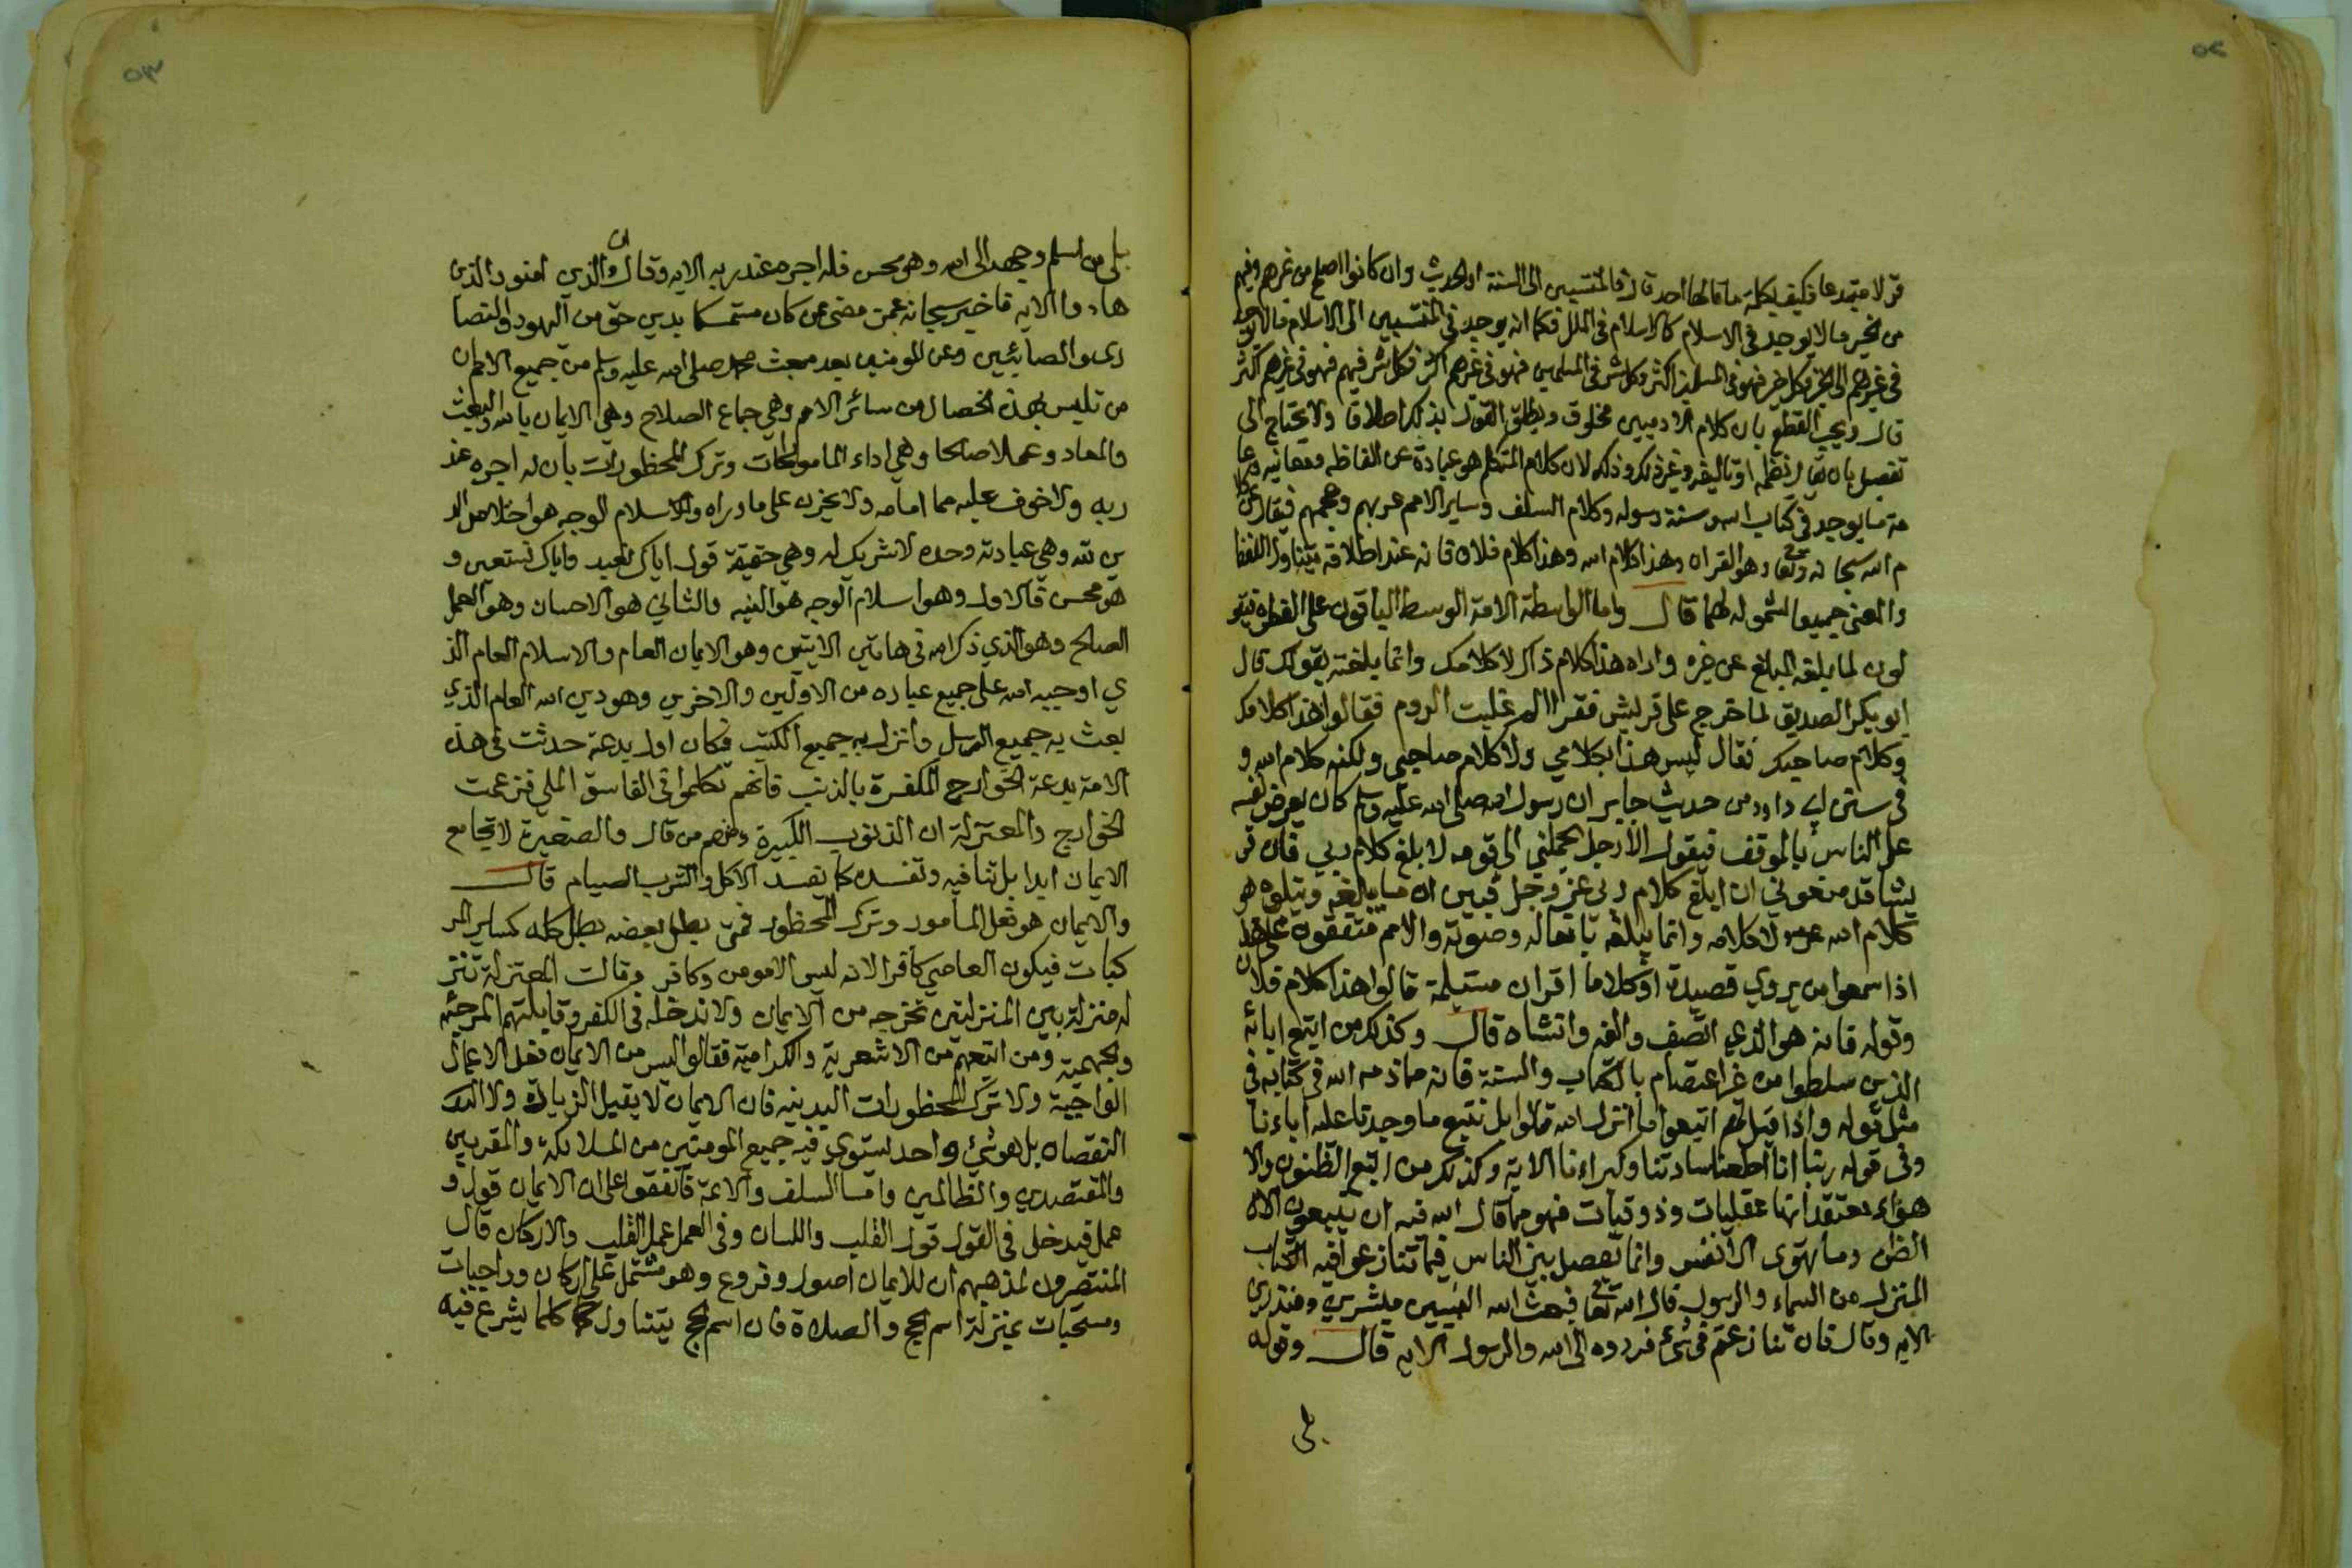 ٥٢
قولا مبتدعا فكيف بكلمة ما قالها احد قال فالمنتسبين الى السنة والحديث وان كانوا اصلح من غيرهم وفيهم
من الخير ما لا يوجد في الاسلام كالاسلام في الملل فكما انه يوجد في المنتسبين الى الاسلام ما لا يوجد
في غيرهم الى الخير وكل خير فهو في المسلمين اكثر وكل شر في المسلمين فهو في غيرهم اكثر فكل شر فيهم فهو في غيرهم اكثر
قال ويجب القطع بان كلام الادميين مخلوق ويطلق القول بذلك اطلاقا ولا يحتاج الى
تفصيل بان يقال نظمه او تاليفه وغير ذلك وذلك لان كلام المتكلم هو عبارة عن الفاظه ومعانيه وعا
مة ما يوجد في كتاب الله وسنة رسوله وكلام السلف وساير الامم عربهم وعجمهم فيقال عن كلا
م الله سبحانه وتعالى وهو القران وهذا كلام الله وهذا كلام فلان فانه عند اطلاقه يتناول اللفظ
والمعنى جميعا لشموله لهما قال واما الواسطة الامة الوسط الباقون على الفطرة فيقو
لون لما بلغه المبلغ عن غيره واداه هذا كلام ذاك لا كلامك وانما بلغته بقولك قال
ابو بكر الصديق لما خرج على قريش فقرا الم غلبت الروم فقالوا هذا كلامك
وكلام صاحبك فقال ليس هذا بكلامي ولا كلام صاحبي ولكنه كلام الله و
في سنن ابي داود من حديث جابر ان رسول الله صلى الله عليه وسلم كان يعرض نفسه
على الناس بالموقف فيقول الا رجل يحملني الى قومه لا بلغ كلام ربي فان قر
يشا قد منعوني ان ابلغ كلام ربي عز وجل فبين ان ما يبلغه ويتلوه هو
كلام الله لا كلامه وانما يبلغه بافعاله وصوته والامم متفقون على هذا
اذا سمعوا من يروي قصيدة او كلاما او قران مسيلمة قالوا هذا كلام فلان
وقوله فانه هو الذي الفه وانشاه قال وكذلك من اتبع ابائه
الذين سلطوا من غير اعتصام بالكتاب والسنة فانه مما ذمه الله في كتابه في
مثل قوله واذا قيل لهم اتبعوا ما انزل الله قالوا بل نتبع ما وجدنا عليه اباءنا
وفي قوله ربنا انا اطعنا سادتنا وكبراءنا الاية وكذلك من اتبع الظنون والا
هواء معتقدا انها عقليات وذوقيات فهو مما قال الله فيه ان يتبعون الا
الظن وما تهوى الانفس وانما يفصل بين الناس فيما تنازعوا فيه الكتاب
المنزل من السماء والرسول قال الله تعا فبعث الله النبيين مبشرين ومنذرين
الايه وقال فان تنازعتم في شيء فردوه الى الله والرسول الايه قال وقوله
بلى
٥٣
بلى من اسلم وجهه الى الله وهو محسن فله اجره عند ربه الايه وقال ان الذين امنوا والذين
هادوا الايه فاخبر سبحانه عمن مضى ممن كان متمسكا بدين حق من اليهود والنصا
رى والصابئين وعن المومنين بعد مبعث محمد صلى الله عليه وسلم من جميع الامم ان
من تلبس بهذه الخصال من سائر الامم وهي جماع الصلاح وهي الايمان بالله والبعث
والمعاد وعملا صالحا وهي اداء المامورات وترك المحظورات بان له اجره عند
ربه ولا خوف عليه مما امامه ولا يحزن على ما وراه والاسلام الوجه هو اخلاص الد
ين لله وهي عبادته وحده لا شريك له وهي حقيقة قول اياك نعبد واياك نستعين و
هو محسن فالاول وهو اسلام الوجه هو النيه والثاني هو الاحسان وهو العمل
الصالح وهو الذي ذكر الله في هاتين الايتين وهو الايمان العام والاسلام العام الذ
ي اوجبه الله على جميع عباده من الاولين والاخرين وهو دين الله العام الذي
بعث به جميع الرسل وانزل به جميع الكتب فكان اول بدعة حدثت في هذه
الامة بدعة الخوارج المكفرة بالذنب فانهم تكلموا في الفاسق الملي فزعمت
الخوارج والمعتزلة ان الذنوب الكبيرة ومنهم من قال والصغيرة لا تجامع
الايمان ابدا بل تنافيه وتفسده كما يفسد الاكل والشرب الصيام قال
والايمان هو فعل المامور وترك المحظور فمتى بطل بعضه بطل كله كساير المر
كبات فيكون العاصي كافرا لانه ليس الا مومن وكافر وقالت المعتزلة ننز
له منزلة بين المنزلتين نخرجه من الايمان ولا ندخله في الكفر وقابلتهم المرجئه
والجهمية ومن اتبعهم من الاشعرية والكرامية فقالوا ليس من الايمان فعل الاعمال
الواجبة ولا ترك المحظورات البدنيه فان الايمان لا يقبل الزيادة ولا
النقصان بل هو شيء واحد يستوي فيه جميع المومنين من الملائكة والمقربين
والمقتصدين والظالمين واما السلف والائمة فاتفقوا على ان الايمان قول و
عمل فيدخل في القول قول القلب واللسان وفي العمل عمل القلب والاركان قال
المنتصرون لمذهبهم ان للايمان اصول وفروع وهو مشتمل على اركان وواجبات
ومستحبات بمنزلة اسم الحج والصلاة فان اسم الحج يتناول كلما يشرع فيه